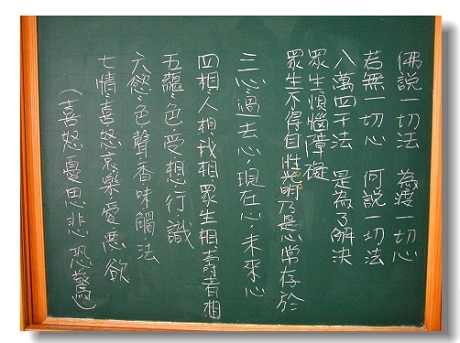 佛說一切法 為渡一切心
若無一切心 何說一切法
八萬四千法 是為了解決
眾生煩惱障礙
眾生不得自性光明乃是心常存於
三心:過去心,現在心,未來心
四相人相我相眾生相壽者相
五蘊:色受想行識
六慾:色聲香味觸法
七情:喜怒哀樂愛惡欲
(喜怒憂思悲恐驚)